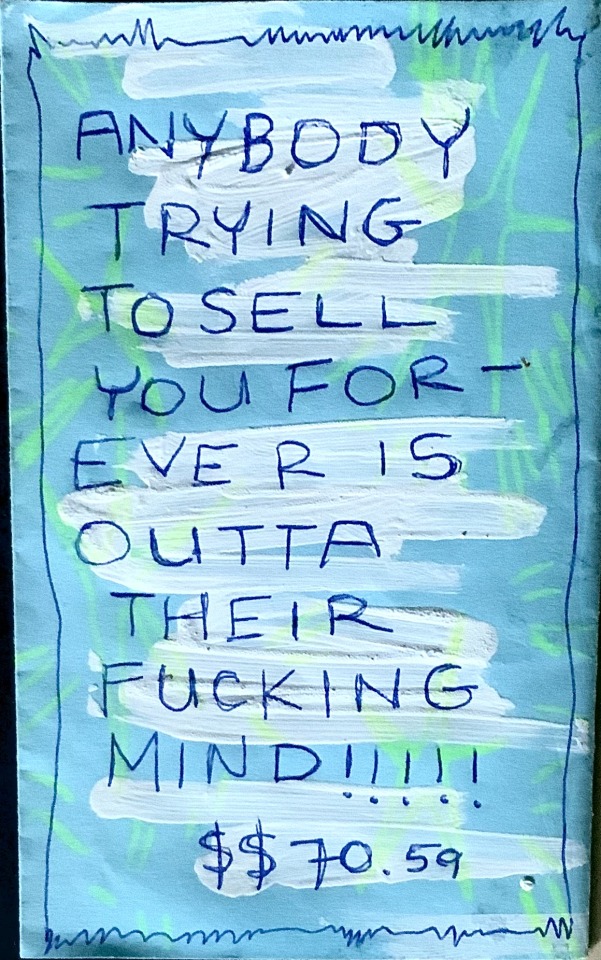 ANYBODY
TRYING
TO SELL
YOU FOR-
EVER IS
OUTTA
THEIR
FUCKING
MIND!!!!!
$$70.59